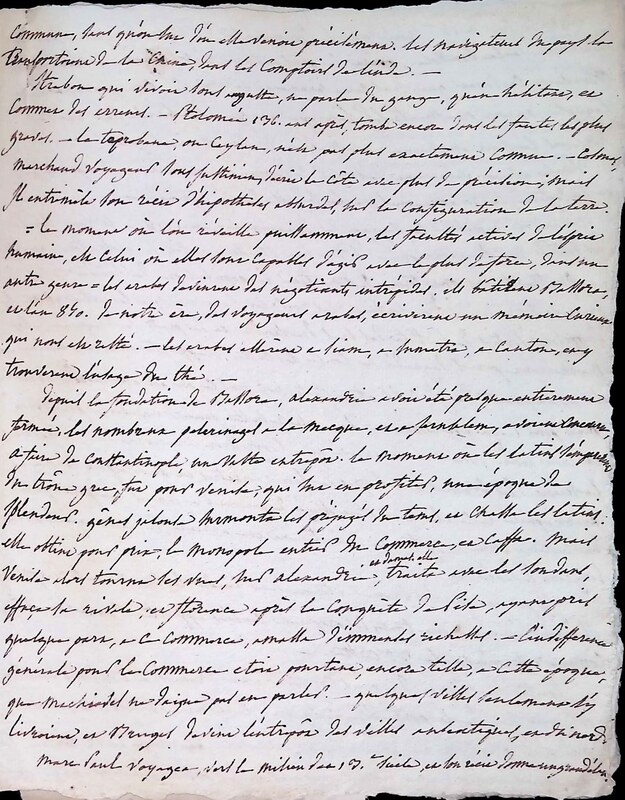 commune, sans qu'on sut d'où elle venoit précisément. les navigateurs du pays la
transportoient de la Chine, dans les Comptoirs de l'inde. —
Strabon qui vivoit sous auguste, ne parle du gange, qu'en hésitant, et
commet des erreurs. — Ptolomée 136. ans après, tombe encore dans les fautes les plus
graves. — la taprobane, ou Ceylan, n'est pas plus exactement connue. — Cosmas,
marchand voyageur sous justinien, décrit la côte avec plus de précision, mais
il entremêle son récit d'hypothèses absurdes, sur la configuration de la terre.
= le moment où l'on réveille puissamment, les facultés actives de l'esprit
humain, est celui où elles sont capables d'agir avec le plus de force, dans un
autre genre = les arabes devinrent des négotiants intrépides, ils bâtirent Bassora,
et l'an 850. de notre ère, des voyageurs arabes, écrivirent un mémoire curieux
qui nous est resté. — les arabes allèrent a siam, a sumatra, a canton, et y
trouvèrent l'usage du thé. —
depuis la fondation de Bassora, alexandrie avoit été presque entièrement
fermée, les nombreux pelerinages a la mecque, et a jérusalem, avoient concouru,
a faire de constantinople un vaste entrepôt. le moment où les latins s'emparèrent
du trône grec, fut pour venise, qui sut en profiter, une époque de
splendeur. gênes jalouse surmonta les préjugés du tems, et chassa les latins.
elle obtint pour prix, le monopole entier du Commerce, et Caffa. mais
Venise alors tourna ses vues, sur alexandrie, et damas, elle traita avec les soudans,
effaça sa rivale, et florence après la conquête de Pise, ayant pris
quelque part, a ce commerce, amassa d'immenses richesses. — l'indifférence
générale pour le Commerce etoit pourtant, encore telle, a cette époque,
que machiavel ne daigne pas en parler — quelques villes seulement s'y
livroient, et Bruges devint l'entrepôt des villes anséatiques, et du nord.
marc Paul voyagea, vers le milieu du 13.e siècle, et son récit donna un grand